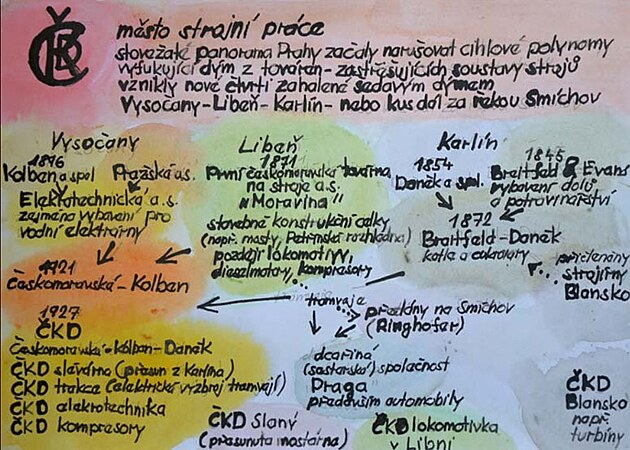 ČKD
město strojní práce
stověžaté panorama Prahy začaly narušovat cihlové polynomy
vyfukující dým z továren - zastřešujících soustavy strojů
vznikly nové čtvrti zahalené šedavým dýmem
Vysočany - Libeň - Karlín - nebo kus dál za řekou Smíchov
Vysočany
1896
Kolben a spol Pražská a.s.
Elektrotechnická a.s.
zejména vybavení pro
vodní elektrárny
1921
Českomoravská - Kolben
1927
ČKD
Českomoravská - Kolben - Daněk
ČKD slévárna (přesun z Karlína)
ČKD trakce (elektrické výzbroj tramvají)
ČKD elektrotechnika
ČKD kompresory
Libeň
1871
První českomoravská továrna
na stroje a.s.
"Moravina"
stavebné konstrukční celky
(např. mosty, Petřínská rozhledna)
později lokomotivy,
dieselmotory, kompresory
Karlín
1854
Daněk a spol.
1845
Breitfeld & Evans
vybavení dolů
a potravinářství
1872
Breitfeld - Daněk
kotle a cukrovary
přičleněny
strojírny
Blansko
tramvaje
předány na Smíchov
(Ringhofer)
dceřiná
(sesterská) společnost
Praga
především automobily
ČKD Slaný
(přesunuta mostárna)
ČKD lokomotivka
v Libni
ČKD
Blansko
např.
turbíny